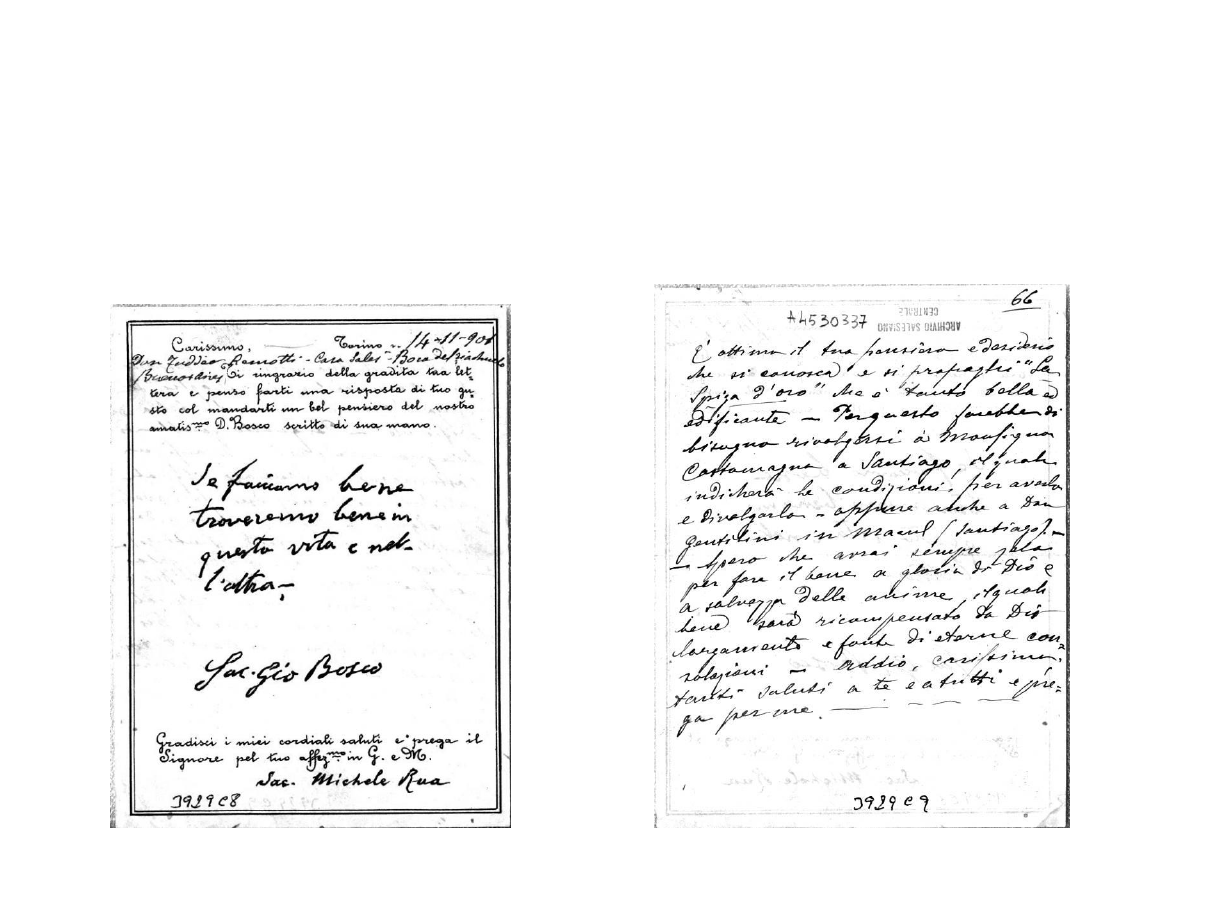 Carissimo, Torino 14-11-901
Don Taddeo Remotti - Casa Sales. - Boca del Riachuelo
Buenos Aires Ti ringrazio della gradita tua let-
tera e penso farti una risposta di tuo gu-
sto col mandarti un bel pensiero del nostro
amatis.mo D. Bosco scritto di sua mano.
Se facciamo bene
troveremo bene in
questa vita e nel-
l'altra -
Sac. Gio Bosco
Gradisci i miei cordiali saluti e prega il
Signore pel tuo affez.mo in G. e M.
Sac. Michele Rua
3929 C8
66
A4530337
ARCHIVIO SALESIANO
CENTRALE
È ottimo il tuo pensiero e desiderio
che si conosca e si propaghi "La
Spiga d'oro" che è tanto bella ed
edificante - Per questo sarebbe di
bisogno rivolgersi a Monsignor
Costamagna a Santiago, il quale
indicherà le condizioni per averla
e divulgarla - oppure anche a Don
Gentilini in Macul (Santiago). -
- Spero che avrai sempre zelo
per fare il bene a gloria di Dio e
a salvezza delle anime, il quale
bene sarà ricompensato da Dio
largamente e fonte di eterne con-
solazioni - Addio, carissimo,
tanti saluti a te e a tutti e pre-
ga per me.
3929 C9